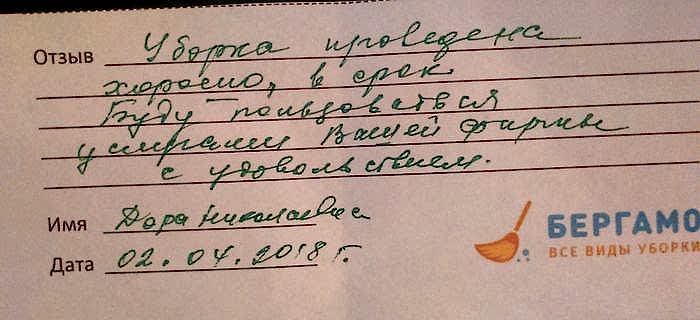 Отзыв Уборка проведена
хорошо, в срок
Буду пользоваться
услугами Вашей фирмы
с удовольствием.
Имя Дора Николаевна
Дата 02.04.2018 г.
БЕРГАМО
ВСЕ ВИДЫ УБОРКИ